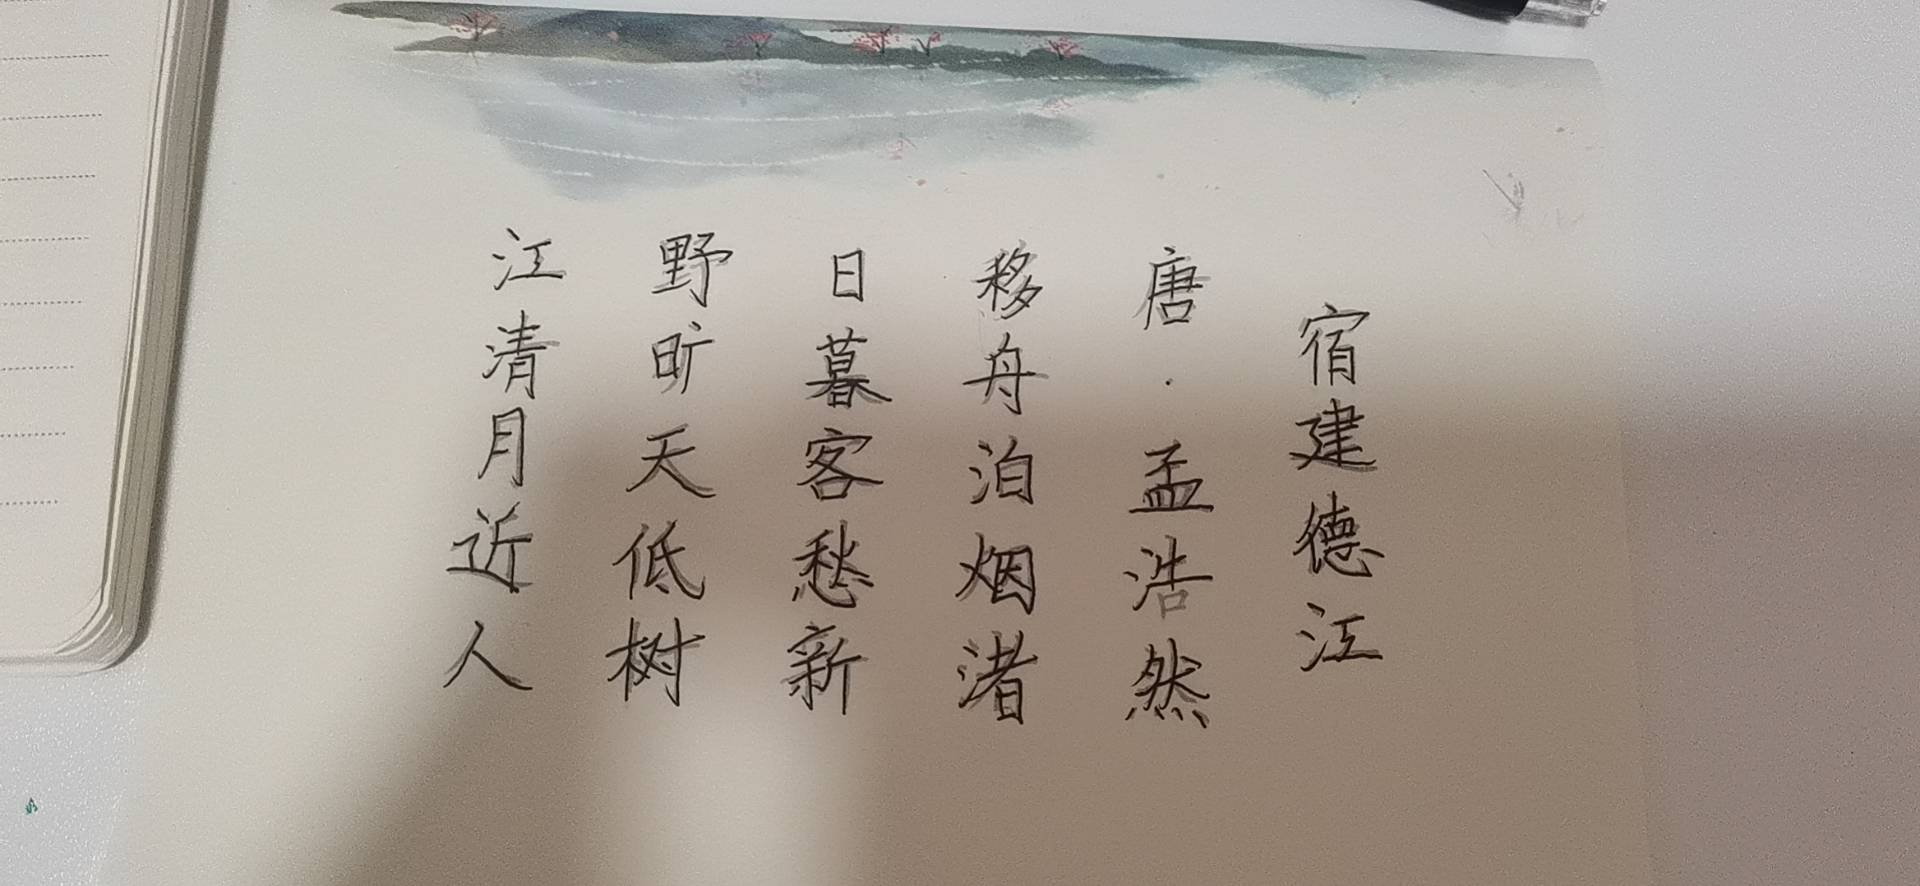 宿建德江
唐·孟浩然
移舟泊烟渚
日暮客愁新
野旷天低树
江清月近人